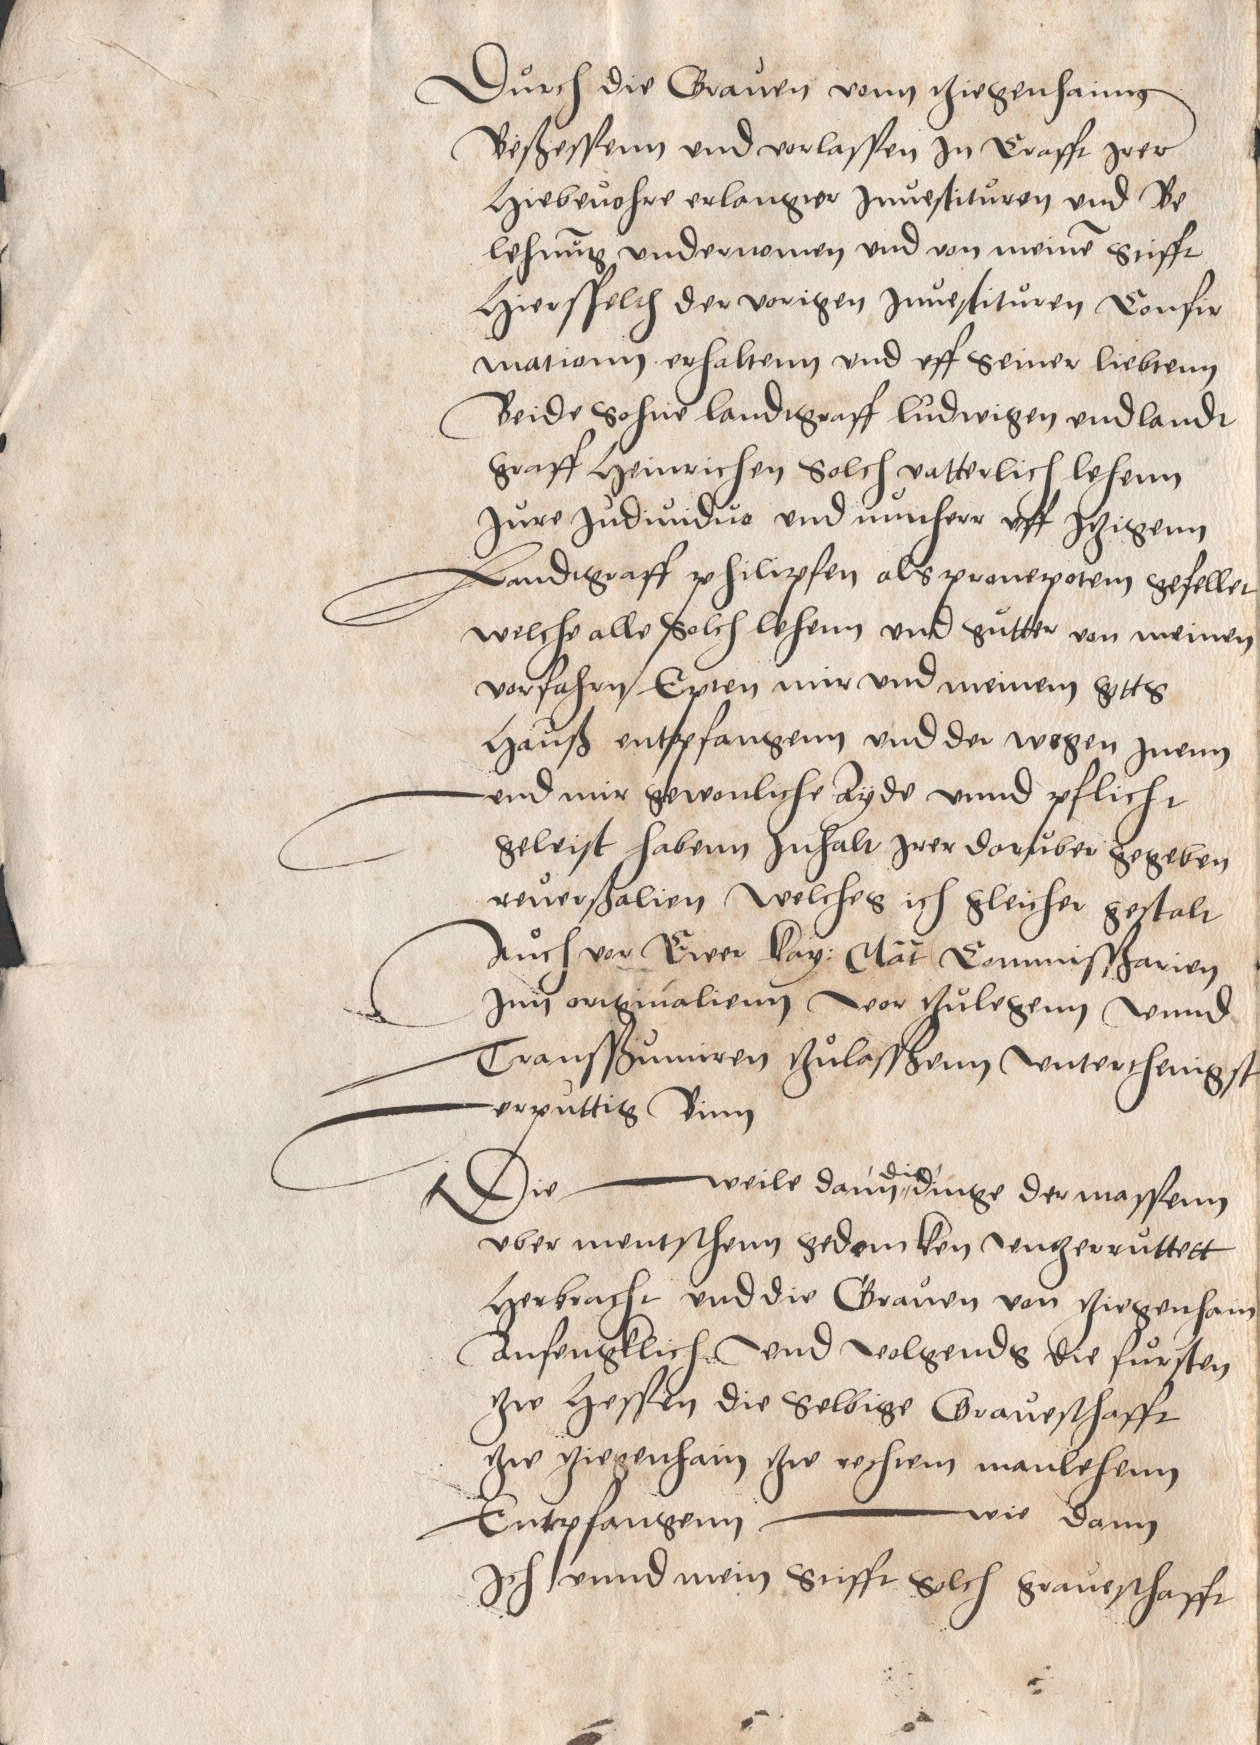 Durch die Grauen vonn Ziegenhainn
Beßessenn und vorlassen In Crafft Irer
Hiebeuohre erlangter Inuestituren und Be
lehnūg undernomen und von meinē Stifft
Hierssfelth der vorigen Inuestituren Confir
mationn erhaltenn und uff Seiner liebtenn
Beide Sohne landtgraff ludwigen und landt
graff Heinrichen Solch vatterlich lehenn
Jure Indiuiduo und nunherr uff Itzigenn
Landtgraff philipsen als pronepotem gefellet
welche alle Solch lehenn und gutter von meinen
vorfahrn Epten mir und meinem gotts
Hauß entpfangenn und der wegen Inenn
und mir gewonliche Ayde unnd pflicht
geleist habenn Inhalt Irer doruber gegeben
reuerßalien welches ich gleicher gestalt
Auch vor Ewer Kay: Mat Commissßarien
Inn originalienn vor zulegenn unnd
Transsßumiren zulassßenn unterthenigst
erputtig Binn
Die weile dann die dinge der massenn
uber mentschenn gedencken untzerruttett
Herbracht und die Grauen von Ziegenhain
Anfengklich und volgends die fursten
zw Hessen die Selbige Graueschafft
zw Ziegenhain zw rechtem manlehenn
Entpfangenn wie dann
Ich unnd mein Stifft Solch graueschafft